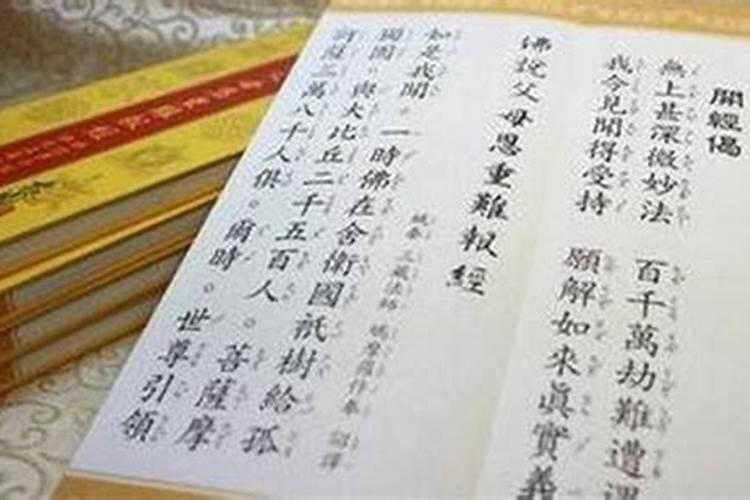 開經偈
無上甚深微妙法
百千萬劫難遭遇
我今見聞得受持
願解如來真實義
佛說父母恩重難報經
姚秦三藏法師鳩摩羅什奉 詔譯
如是我聞。一時佛在舍衛國祇樹給孤
獨園。與大比丘二千五百人。菩薩摩
訶薩三萬八千人俱。爾時。世尊引領